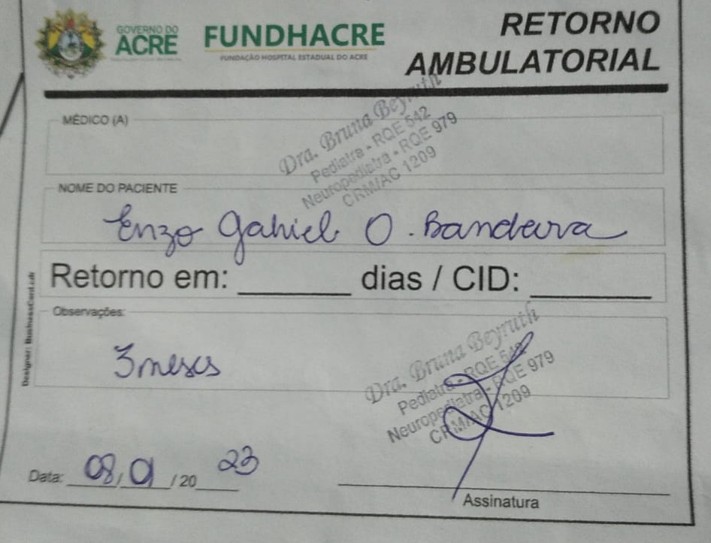 GOVERNO DO
ACRE
FUNDHACRE
FUNDAÇÃO HOSPITAL ESTADUAL DO ACRE
RETORNO
AMBULATORIAL
MÉDICO (A)
Dra. Bruna Beyruth
Pediatra - RQE 542
Neuropediatra - RQE 979
CRM/AC 1209
NOME DO PACIENTE
Enzo Gabriel O. Bandeira
Retorno em: ______ dias / CID: ______
Observações:
3 meses
Dra. Bruna Beyruth
Pediatra - RQE 542
Neuropediatra - RQE 979
CRM/AC 1209
Data: 08/ /20 23
Assinatura
Designer: BusinessCard.cdr